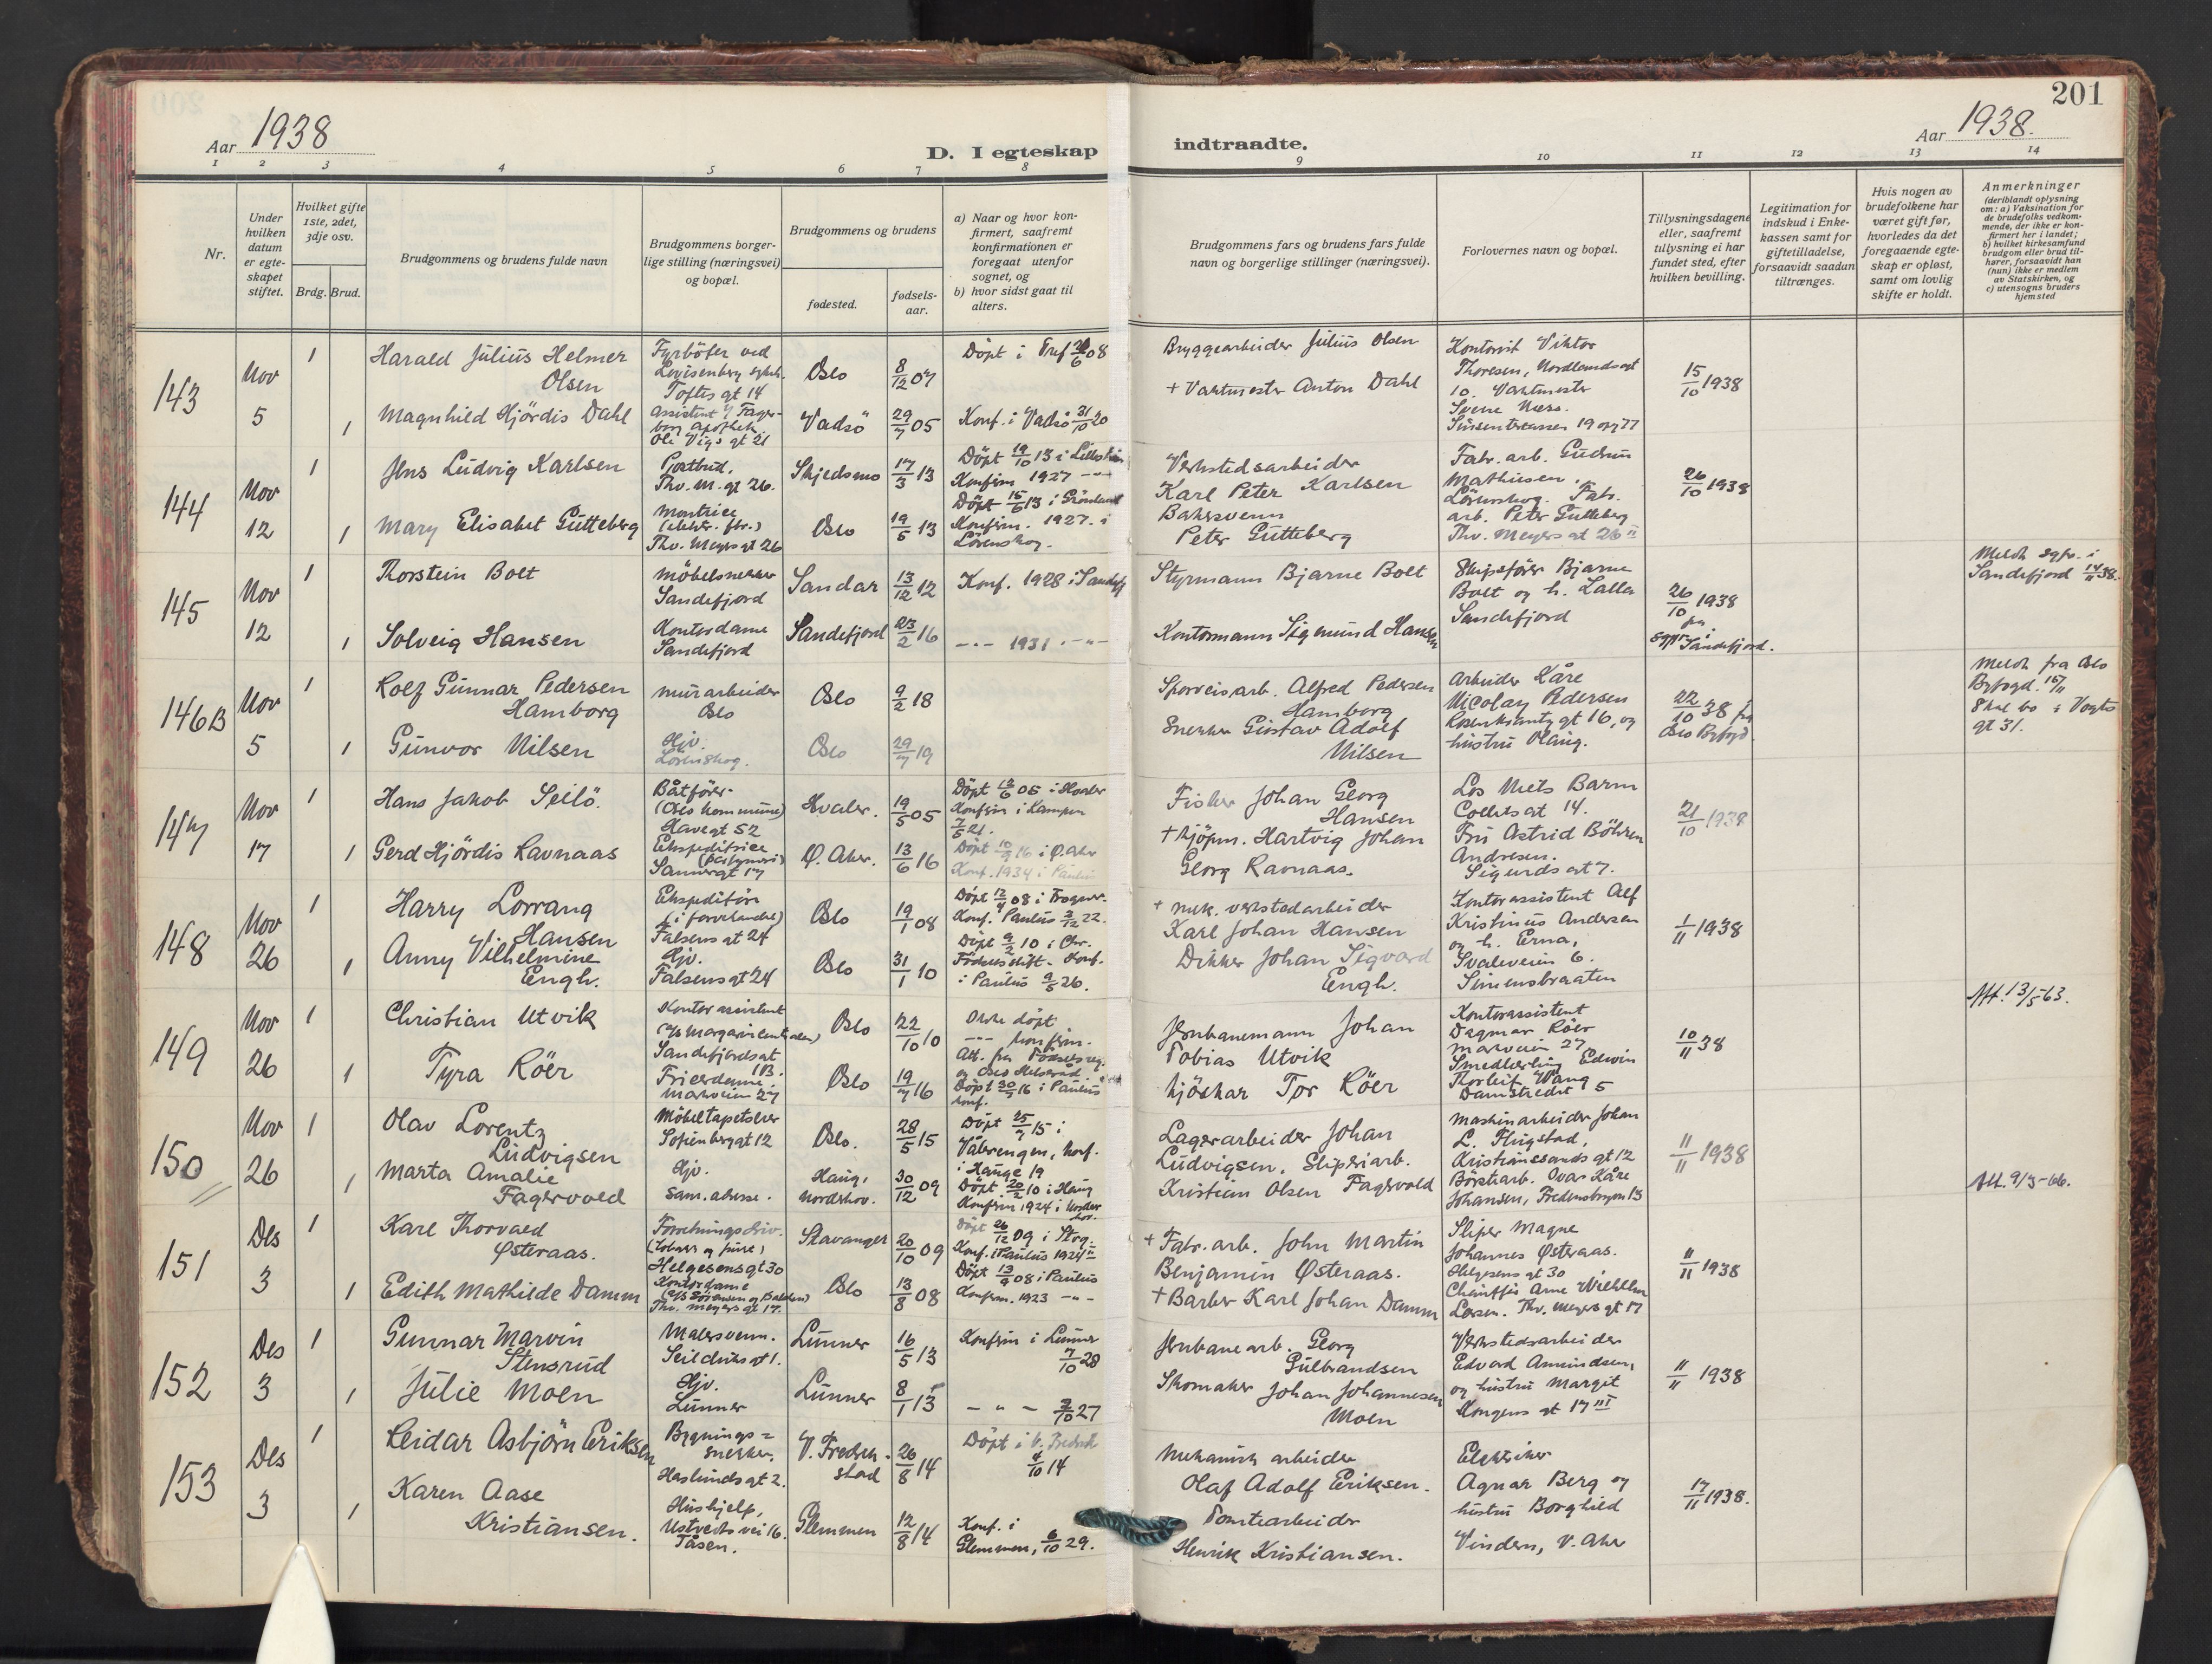 201
Aar 1938
D. I egteskap
indtraadte.
Aar 1938.
1 2 3 4 5 6 7 8 9 10 11 12 13 14
Nr.
Under
hvilken
datum
er egte-
skapet
stiftet.
Hvilket gifte
1ste, 2det,
3dje osv.
Brdg. Brud.
Brudgommens og brudens fulde navn
Brudgommens borger-
lige stilling (næringsvei)
og bopæl.
Brudgommens og brudens
fødested.
fødsels-
aar.
a) Naar og hvor kon-
firmert, saafremt
konfirmationen er
foregaat utenfor
sognet, og
b) hvor sidst gaat til
alters.
Brudgommens fars og brudens fars fulde
navn og borgerlige stillinger (næringsvei).
Forlovernes navn og bopæl.
Tillysningsdagene
eller, saafremt
tillysning ei har
fundet sted, efter
hvilken bevilling.
Legitimation for
indskud i Enke-
kassen samt for
giftetilladelse,
forsaavidt saadan
tiltrænges.
Hvis nogen av
brudefolkene har
været gift før,
hvorledes da det
foregaaende egte-
skap er opløst,
samt om lovlig
skifte er holdt.
Anmerkninger
(deriblandt oplysning
om: a) Vaksination for
de brudefolks vedkom-
mende, der ikke er kon-
firmert her i landet;
b) hvilket kirkesamfund
brudgom eller brud til-
hører, forsaavidt han
(hun) ikke er medlem
av Statskirken, og
c) utensogns bruders
hjemsted
143
Nov
5
1
1
Harald Julius Helmer
Olsen
Magnhild Hjördis Dahl
Fyrböter ved
Lovisenberg sykeh.
Toftes gt 14
Assistent v/ Fager-
borg apothek
Ole Vigs gt 21
Oslo
8/12 07
Vadsö
29/7 05
Konf. i Vadsö 31/10 20
Bryggearbeider Julius Olsen
+ Vaktmester Anton Dahl
Kontorist Viktor
Thoresen, Nordlandsgt
10. Vaktmester
15/10 1938
144
Nov
12
1
1
Jens Ludvig Karlsen
Mary Elisabet Gutteberg
Postbud.
Thv. M. gt 26.
Montrice
(elektr. fbr.)
Thv. Meyers gt 26
Skjedsmo
17/3 13
Oslo
19/5 13
Konfirm 1927 -"-
Konfirm. 1927. i
Lörenskog.
Verkstedsarbeider
Karl Peter Karlsen
Bakersvenn
Peter Gutteberg
Fabr. arb. Gudrun
Mathiesen,
Lörenskog. Fabr.
arb. Peter Gutteberg
Thv. Meyers gt 26 II
26/10 1938
145
Nov
12
1
1
Thorstein Bolt
Solveig Hansen
Möbelsnekker
Sandefjord
Kontordame
Sandefjord
Sandar
13/12 12
Sandefjord
23/2 16
Konf. 1928 i Sandefj
-"- 1931 -"-
Styrmann Bjarne Bolt
Kontormann Sigmund Hansen
Skipsförer Bjarne
Bolt og h. Lalla
Sandefjord
26/10 1938
fra
sgpr. i Sandefjord.
Meldt sgpr. i
Sandefjord 14/11 38.
146B
Nov
5
1
1
Rolf Gunnar Pedersen
Hamborg
Gunvor Nilsen
Murarbeider
Oslo
Hjv.
Lörenskog.
Oslo
9/2 18
Oslo
29/7 19
Sporveisarb. Alfred Pedersen
Hamborg
Snekker Gustav Adolf
Nilsen
Arbeider Kåre
Nicolay Pedersen
Rosenkrantz gt 16, og
hustru Olaug.
22/10 38 fra
Oslo Byfogd
Meldt fra Oslo
Byfogd. 15/11
Skal bo i Vogts
gt 31.
147
Nov
17
1
1
Hans Jakob Seilö.
Gerd Hjördis Ravnaas
Båtförer
(Oslo kommune)
Havegt 52
Ekspeditrice
Sannergt 17
Hvaler.
19/5 05
Ø. Aker.
13/6 16
Döpt 12/6 05 i Hvaler
Konfirm i Kampen
7/5 21.
Döpt 10/9 16 i Ø. Aker
Konf. 1934 i Paulus
Fisker Johan Georg
Hansen
+ Kjöpm. Hartvig Johan
Georg Ravnaas.
Los Niels Barm
Colletsgt 14.
Fru Astrid Böhren
Andresen.
Sigurds gt 7.
21/10 1938
148
Nov
26
1
1
Harry Lorrang
Hansen
Anny Vilhelmine
Engh.
Ekspeditör
Falsens gt 24
Hjv.
Falsens gt 24
Oslo
19/1 08
Oslo
31/1 10
Döpt 12/4 08 i Frogner.
Konf. Paulus 3/12 22.
Döpt 9/2 10 i Chr.
Födselsstift. Konf.
i Paulus 9/5 26.
+ Mek. verkstedarbeider
Karl Johan Hansen
Dikker Johan Sigvard
Engh.
Kontorassistent Alf
Kristinus Andersen
og h. Erna,
Svaleveien 6.
Simensbraaten
1/11 1938
149
Nov
26
1
1
Christian Utvik
Tyra Röer
Kontorassistent
(A/s Margarincentralen)
Sandefjordsgt
1B.
Friserdame.
Markveien 27
Oslo
22/10 10
Oslo
19/7 16
Ikke döpt
-"- konfirm.
Att. fra Födselsreg.
og Oslo Helseråd
Döpt 30/7 16 i Paulus
konf.
Jernbanemann Johan
Tobias Utvik
Kjöskar Tor Röer
Kontorassistent
Dagmar Röer
Markveien 27
Smedlærling Edwin
Thorleif Wang
Damstredet 5
10/11 38
Att. 13/5-63.
150
Nov
26
1
1
Olav Lorentz
Ludvigsen
Marta Amalie
Fagervold
Möbeltapetserer
Sofienberggt 12
Hjv.
Sam. adresse.
Oslo.
28/5 15
Haug,
Norderhov.
30/12 09
Döpt 25/7 15 i
Vålerengen, konf.
i Hauge 19
Döpt 20/2 10 i Haug
Konfirm 1924 i Norder
hov.
Lagerarbeider Johan
Ludvigsen, Sliperiarb.
Kristian Olsen Fagervold
Maskinarbeider Johan
L. Flugstad,
Kristianssands gt 12
Börstearb. Ovar Kåre
Johansen, Fredensborgvn 13
11/11 1938
Att. 9/3-66.
151
Des
3
1
1
Karl Thorvald
Østeraas.
Edith Mathilde Damm
Forretningsdriv.
(Tobakk og frukt)
Helgesens gt 30
Kontordame
Thv. Meyers gt 17.
Stavanger
20/10 09
Oslo
13/8 08
Döpt 26/12 09 i Stvg.
Konf. i Paulus 1924
Döpt 13/9 08 i Paulus
Konfirm. 1923 -"-
+ Fabr. arb. John Martin
Benjamin Østeraas.
+ Barber Karl Johan Damm
Sliper Magne
Johannes Østeraas.
Helgesens gt 30
Chauffør Arne Wilhelm
Larsen. Thv. Meyers gt 17
11/11 1938
152
Des
3
1
1
Gunnar Marvin
Stensrud
Julie Moen
Malersvenn.
Seilduks gt 1.
Hjv.
Lunner
Lunner
16/5 13
Lunner
8/1 13
Konfirm i Lunner
7/10 28
- " - 2/10 27
Jernbanearb. Georg
Gulbrandsen
Skomaker Johan Johannesen
Moen
Verkstedsarbeider
Edvard Amundsen,
og hustru Margit
Kongens gt 17 III
11/11 1938
153
Des
3
1
1
Reidar Asbjörn Eriksen
Karen Aase
Kristiansen.
Bygnings=
snekker.
Haslunds gt 2.
Hushjelp,
Ustvedts vei 16.
Tåsen.
V. Fredrik-
stad
26/8 14
Glemmen
12/8 14
Döpt i V. Fredrikst
4/10 14
Konf. i
Glemmen, 6/10 29.
Mekanisk arbeider
Olaf Adolf Eriksen.
Tomtearbeider
Henrik Kristiansen.
Elektriker
Agnar Berg og
hustru Borghild
Vindern, V. Aker
17/11 1938.